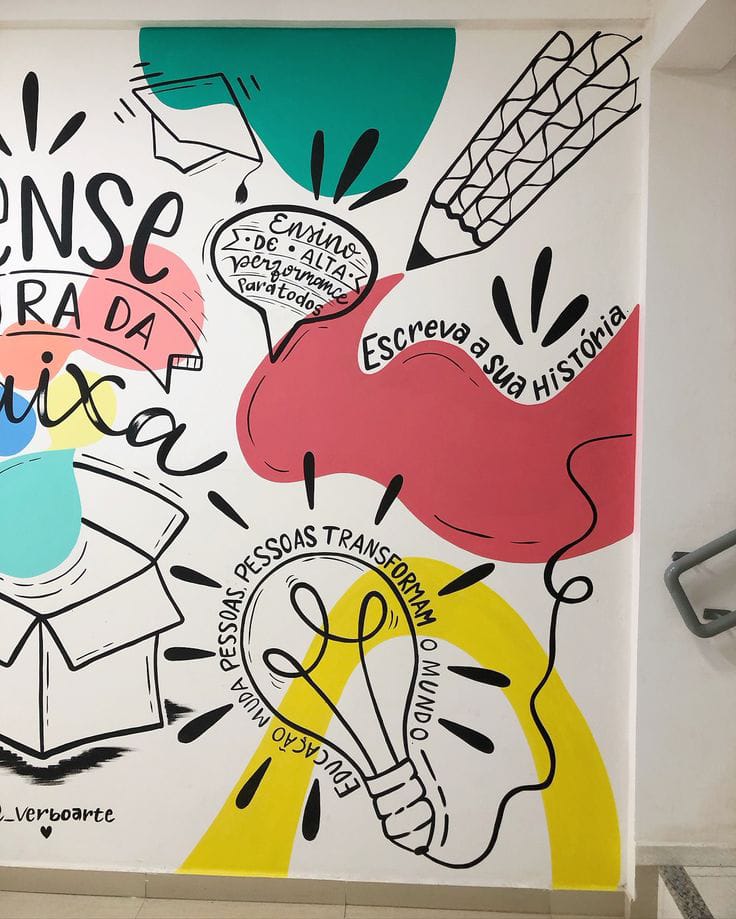 ENSE
RA DA
aixa
Ensino
DE • ALTA
performance
para todos
Escreva a sua HISTÓRIA.
EDUCAÇÃO MUDA PESSOAS. PESSOAS TRANSFORMAM O MUNDO.
_verboarte